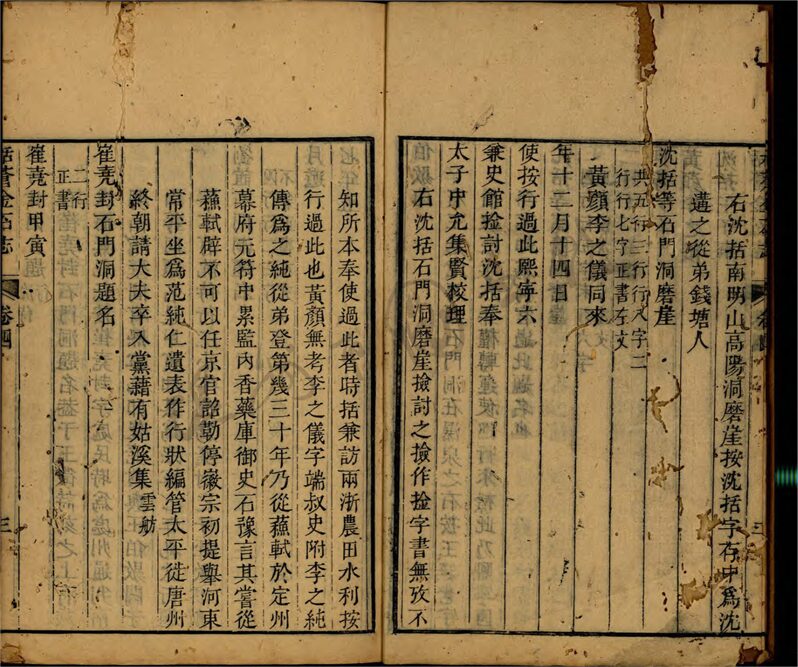 右沈括南明山高陽洞磨崖按沈括字存中爲沈
遘之從弟錢塘人
沈括等石門洞磨崖
共五行三行行八字二
行行七字正書左文
黃顔李之儀同來
年十二月十四日
使按行過此熙寧六
兼史館撿討沈括奉
太子中允集賢校理
右沈括石門洞磨崖撿討之撿作撿字書無攷不
知所本奉使過此者時括兼訪兩浙農田水利按
行過此也黃顔無考李之儀字端叔史附李之純
傳爲之純從弟登第幾三十年乃從蘓軾於定州
幕府元符中累監內香藥庫御史石豫言其嘗從
蘓軾辟不可以任京官詔勒停徽宗初提舉河東
常平坐爲范純仁遺表作行狀編管太平徙唐州
終朝請大夫卒入黨藉有姑溪集 雲舫
崔堯封石門洞題名
二行
正書
崔堯封甲寅題
括蒼金石志
卷四
三